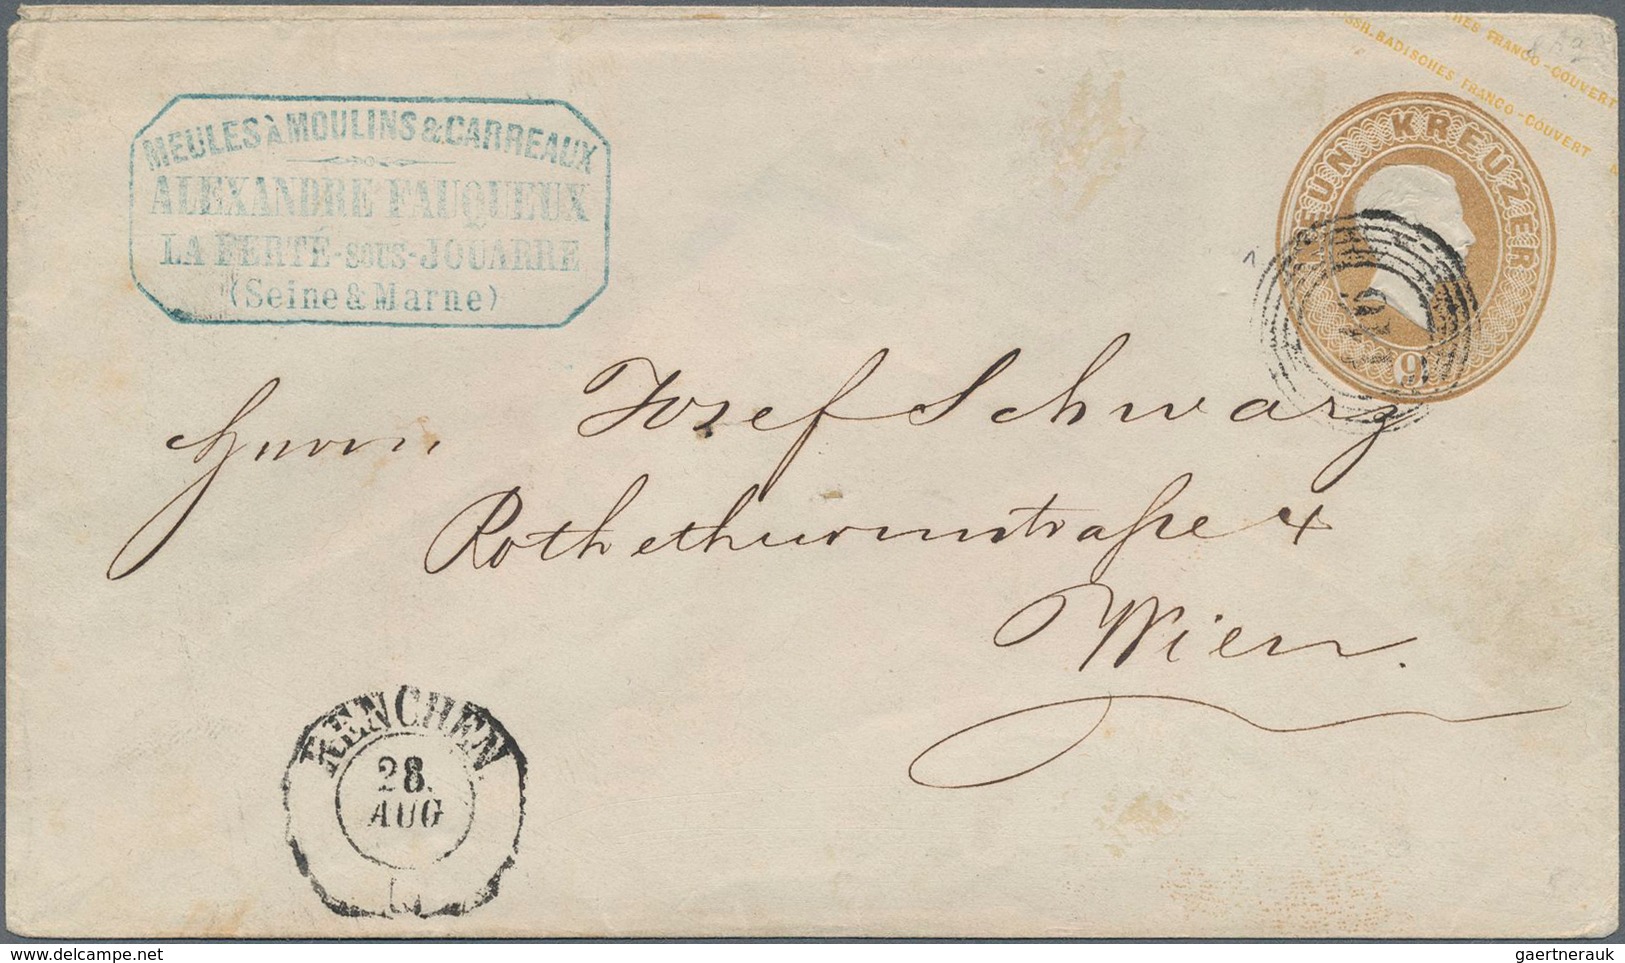 HES FRANCO-COUVERT
SSH. BADISCHES FRANCO-COUVERT
MEULES À MOULINS & CARREAUX
ALEXANDRE FAUQUEUX
LA FERTÉ-SOUS-JOUARRE
(Seine & Marne)
NEUN KREUZER
9
Herrn Josef Schwarz
Rothethurmstraße 4
Wien.
RENCHEN.
28.
AUG
gaertnerauk